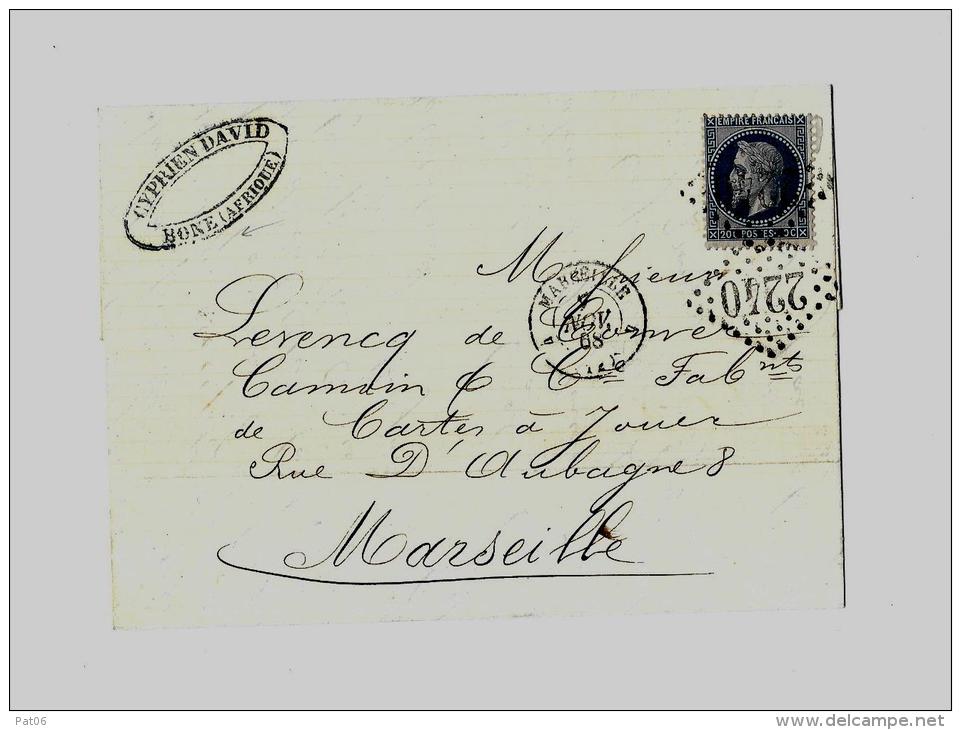 CYPRIEN DAVID
BONE (AFRIQUE)
EMPIRE FRANÇAIS
20C POSTES 20C
2240
Messieurs
MARSEILLE
NOV.
68
Levencq de
Camoin & Cie Fabnts
de Cartes à Jouer
Rue D'Aubagne 8
Marseille
Pat06
www.delcampe.net